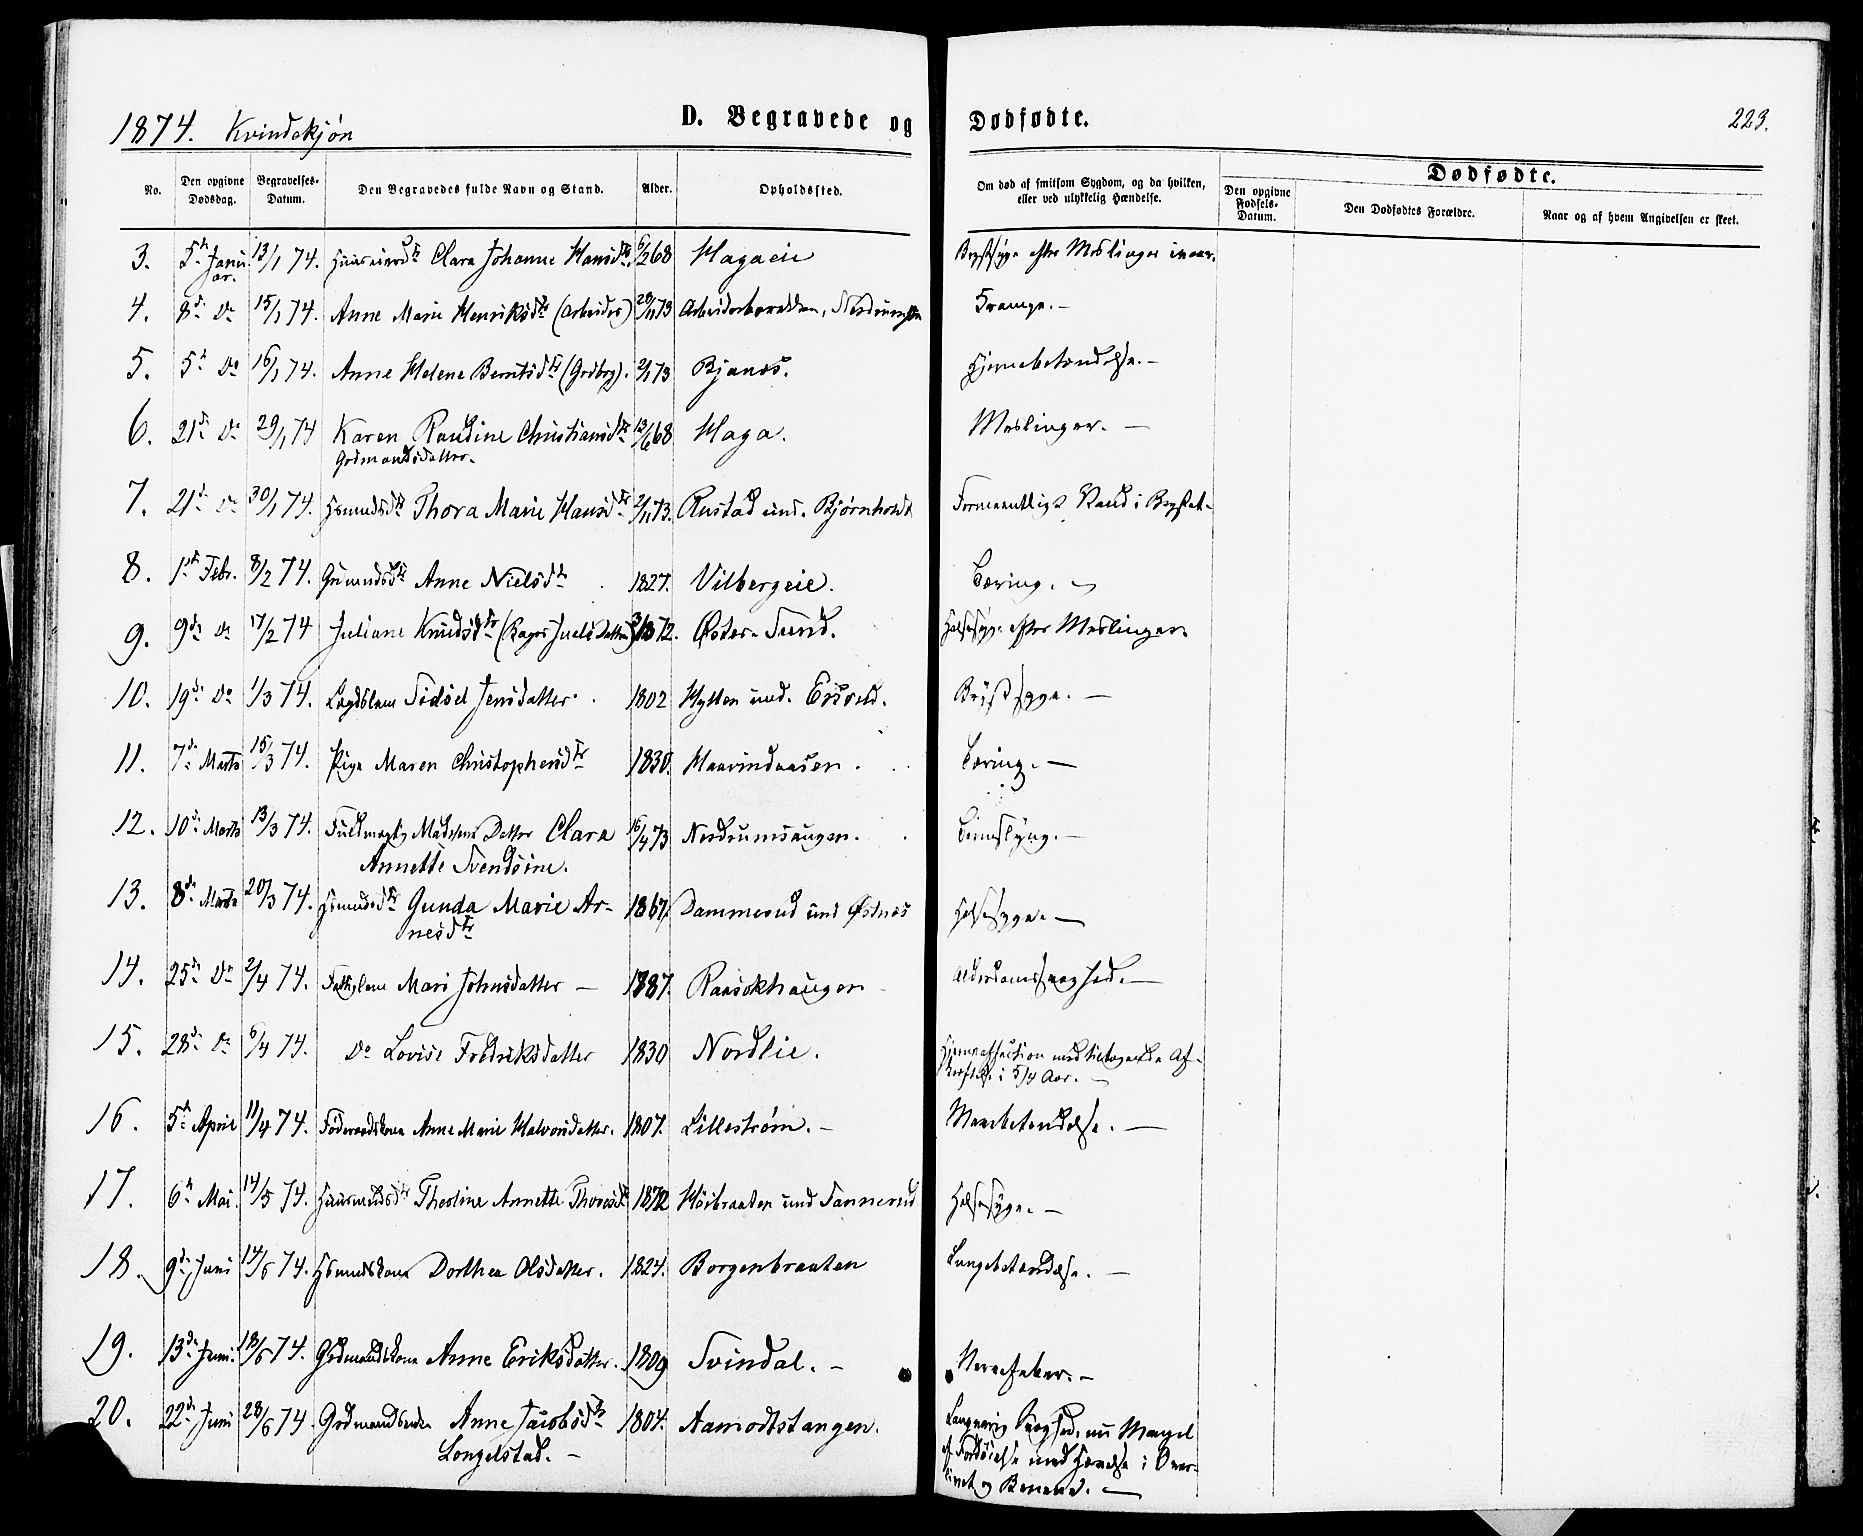 1874. Kvindekjøn
D. Begravede og Dødfødte.
223.
No.
Den opgivne Dødsdag.
Begravelses-Datum.
Den Begravedes fulde Navn og Stand.
Alder.
Opholdssted.
Om død af smitsom Sygdom, og da hvilken, eller ved ulykkelig Hændelse.
Dødfødte.
Den opgivne Fødsels-Datum.
Den Dødfødtes Forældre.
Naar og af hvem Angivelsen er skeet.
3. 5te Januar. 13/1 74. Clara Johanne Hansdtr. 6/2 68 Hagaeie Brystsyge efter Meslinger
4. 8de Do 15/1 74. Anne Marie Henriksdtr (Arbeider) 28/11 73 Arbeiderbarakken, Krampe.-
5. 5te Do 16/1 74. Anne Helene Berntsdtr (Grdbrg). 2/1 73 Bjanes. Hjernebetændelse.-
6. 21de Do 29/1 74 Karen Randine Christiansdtr 13/6 68 Haga. Meslinger. -
Grdmandsdatter.
7. 21de Do 30/1 74. Hsmdsdtr Thora Marie Hansdtr 2/11 73. Rustad und. Bjørnholdt Formeentligt Vand i Brystet-
8. 1ste Febr. 8/2 74. Anne Nielsdtr 1827. Vilbergeie. Tæring. -
9. 9de Do 17/2 74 Juliane Knudsdtr Øster-Sund. Halssyge efter Meslinger.
10. 19de Do 1/3 74. Lægdslem Sidsel Jensdatter. 1802 Hytten und. Brystsyge. -
11. 7de Marts 15/3 74. Pige Maren Christophersdtr 1830. Haarindaasen. Tæring. -
12. 10de Marts 13/3 74. Fuldmægtig Madsens Datter Clara 16/4 73 Nordrumshaugen.
Annette Svendsine.
13. 8de Marts 20/3 74. Hsmdsdtr Gunda Marie Ar- 1867. Dammerud und Østnes Halssyge. -
nesdtr
14. 25de Do 2/4 74. Mari Johnsdatter - 1787. Raasokhaugen Alderdomssvaghed. -
15. 28de Do 6/4 74. Do Lovise Fredriksdatter 1830 Nordlie. Hjerneaffection med tiltagende Af-
kræftelse i 5/4 Aar. -
16. 5te April 11/4 74. Føderaadskone Anne Marie Halvorsdatter. 1807. Lillestrøm. - Mavebetændelse. -
17. 6te Mai. 14/5 74. Huusmandsdtr Theoline Annette Thoresdtr 1872 Høibraaten und Tannerud Halssyge. -
18. 9de Juni 14/6 74. Hsmdskone Dorthea Olsdatter. 1824. Borgenbraaten Lungebetændelse. -
19. 13de Juni. 18/6 74. Grdmandskone Anne Eriksdatter. 1809 Svindal. - Nervefeber. -
20. 22de Juni 28/6 74. Grdmandsenke Anne Jacobsdtr 1804. Aamodtstangen. Langvarig Svaghed, Mangel
Longelstad. - af Fordøielse med Hævelse i Over-
livet og Benene. -